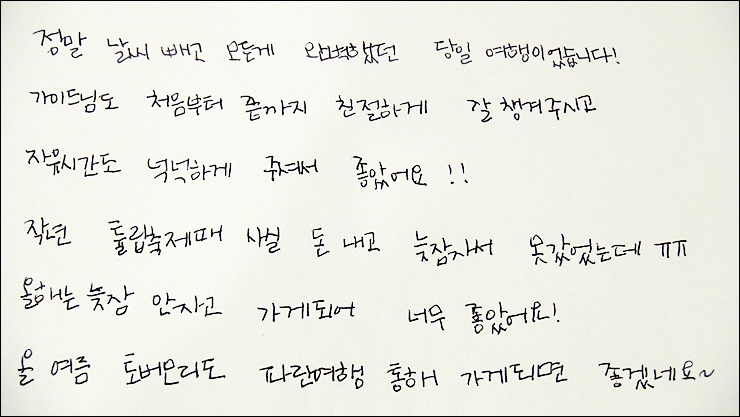 정말 날씨 빼고 모든게 완벽했던 당일 여행이었습니다!
가이드님도 처음부터 끝까지 친절하게 잘 챙겨주시고
자유시간도 넉넉하게 주셔서 좋았어요 !!
작년 튤립축제때 사실 돈 내고 늦잠자서 못갔었는데 ㅠㅠ
올해는 늦잠 안자고 가게되어 너무 좋았어요!
올 여름 토버모리도 파란여행 통해 가게되면 좋겠네요~